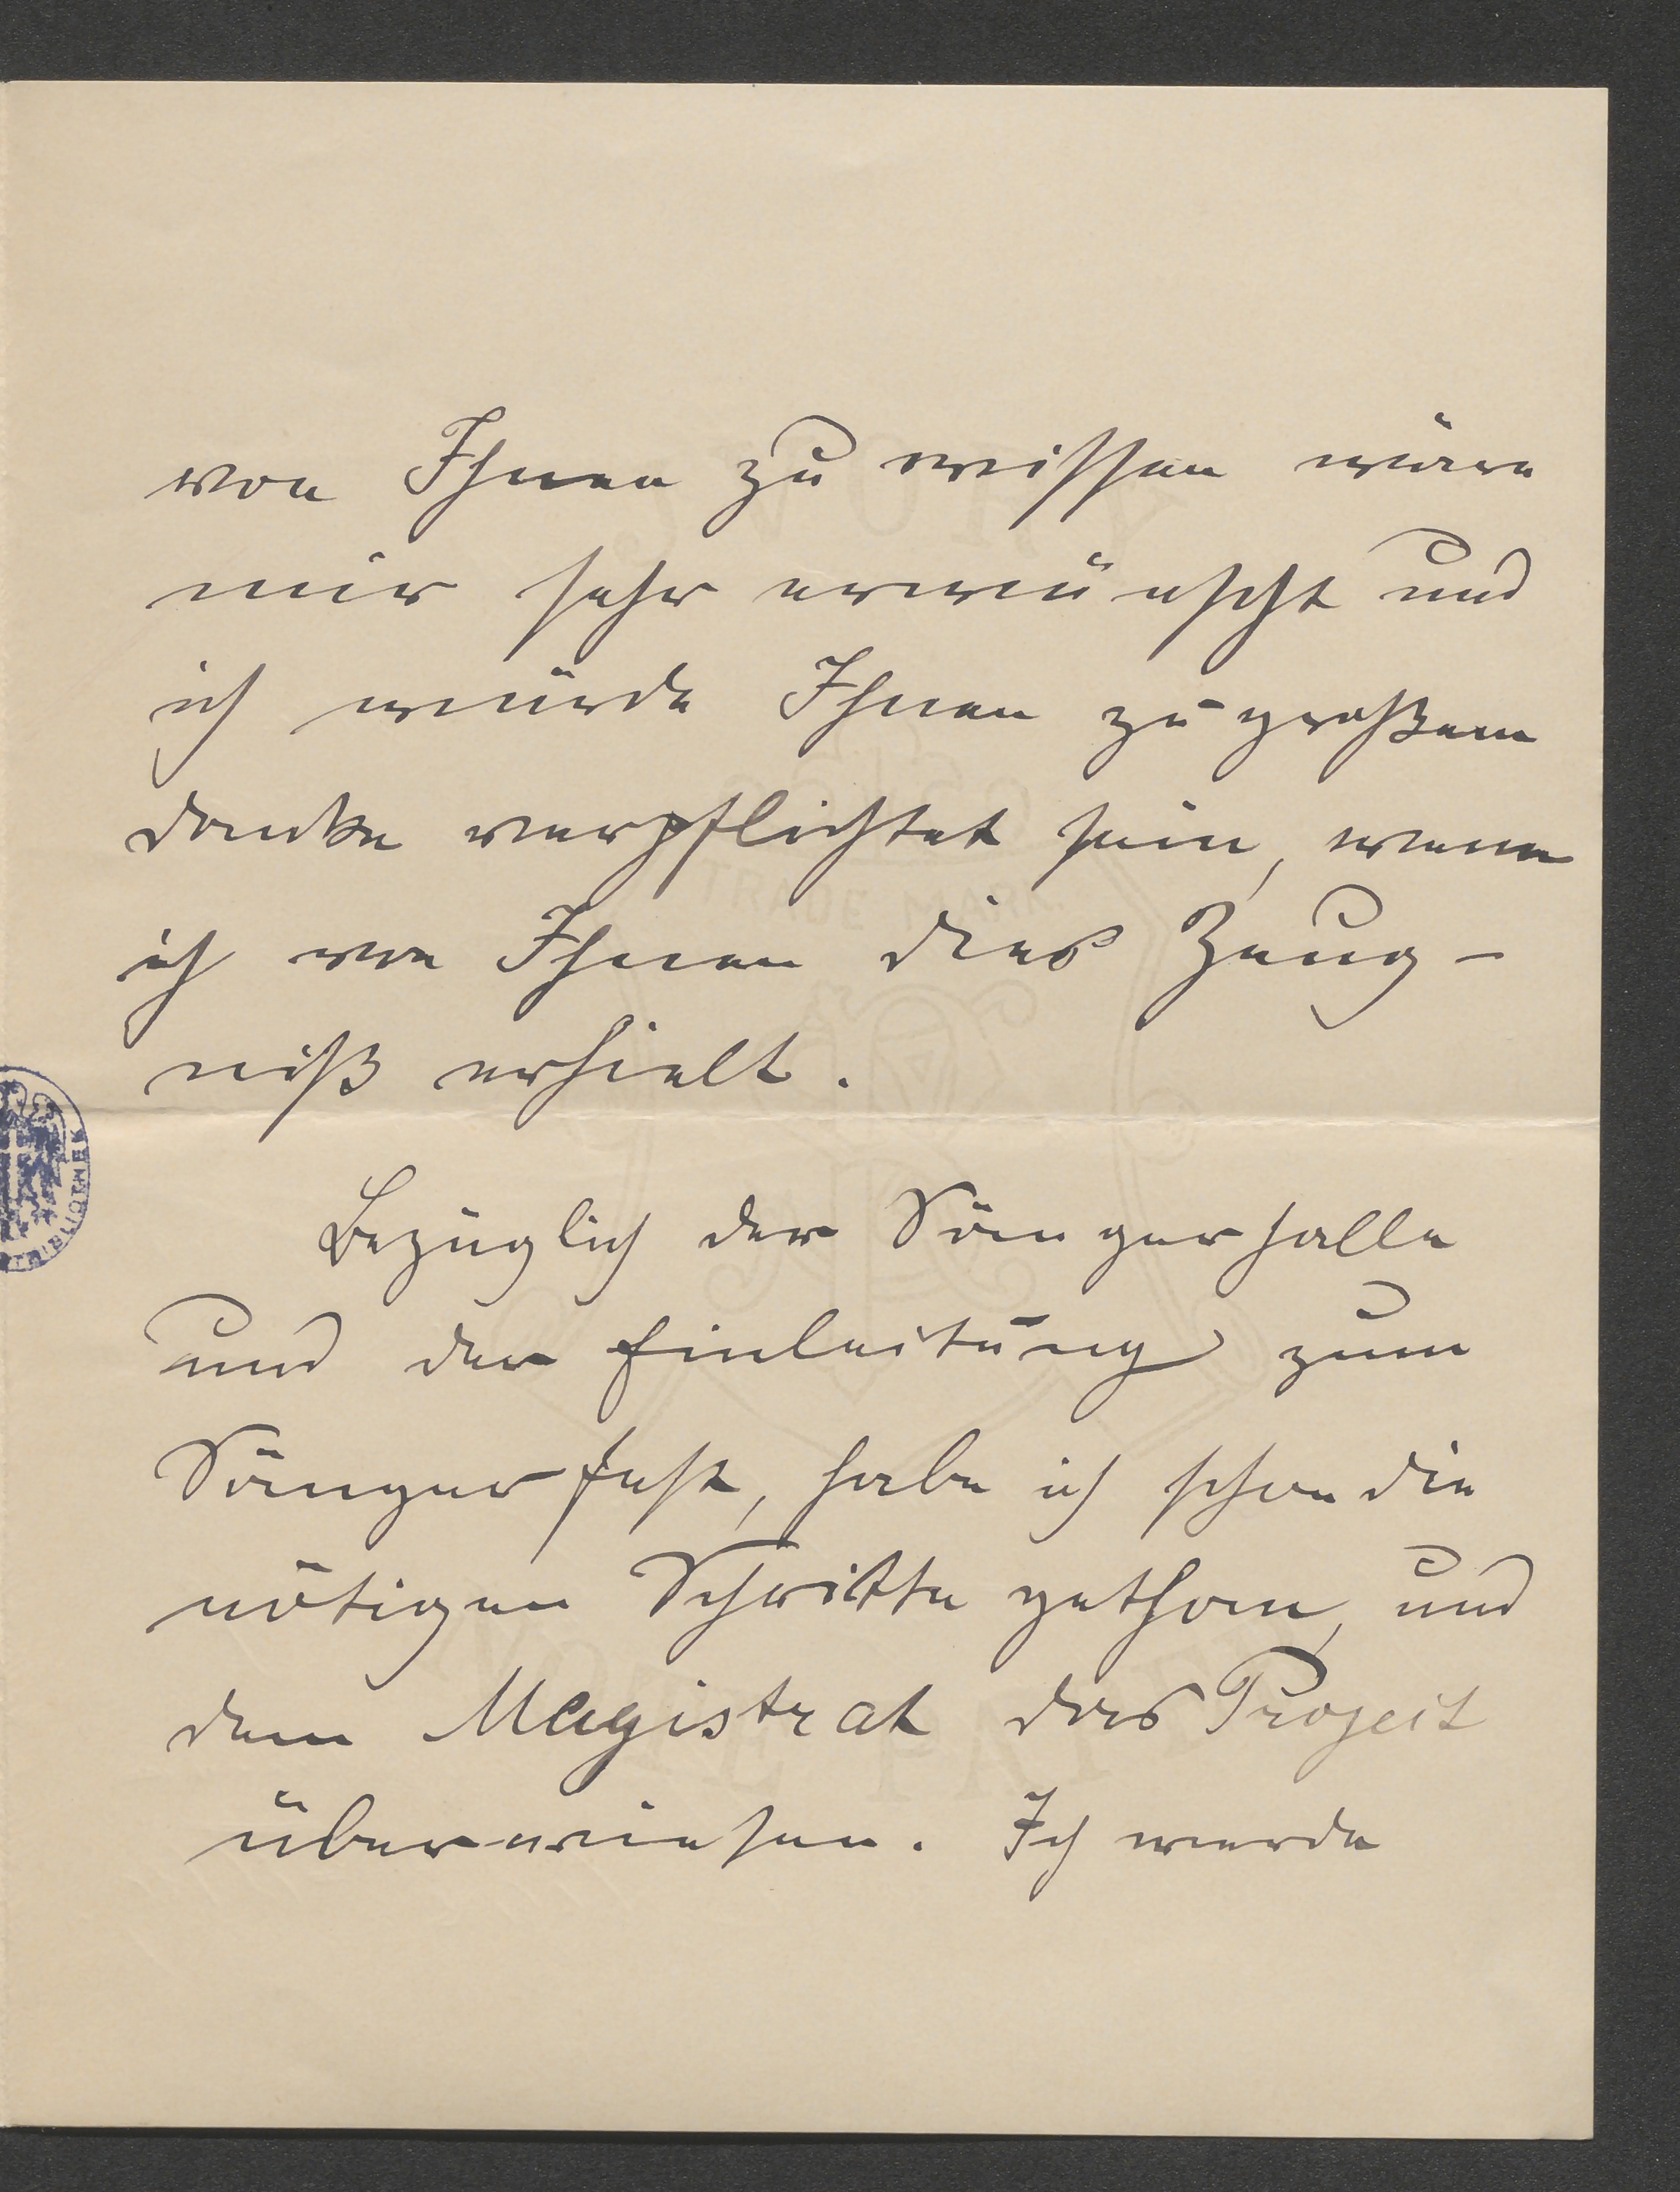 von Ihnen zu wissen wäre
mir sehr erwünscht und
ich würde Ihnen zu großem
danke verpflichtet sein, wenn
ich von Ihnen dies Zeug-
niß erhielt.
Bezüglich der Sängerhalle
und der Einleitung zum
Sängerfest, habe ich schon die
nötigen Schritte gethan, und
dem Magistrat das Projeit
überwiesen. Ich werde
TRADE MARK
BIBLIOTHEK